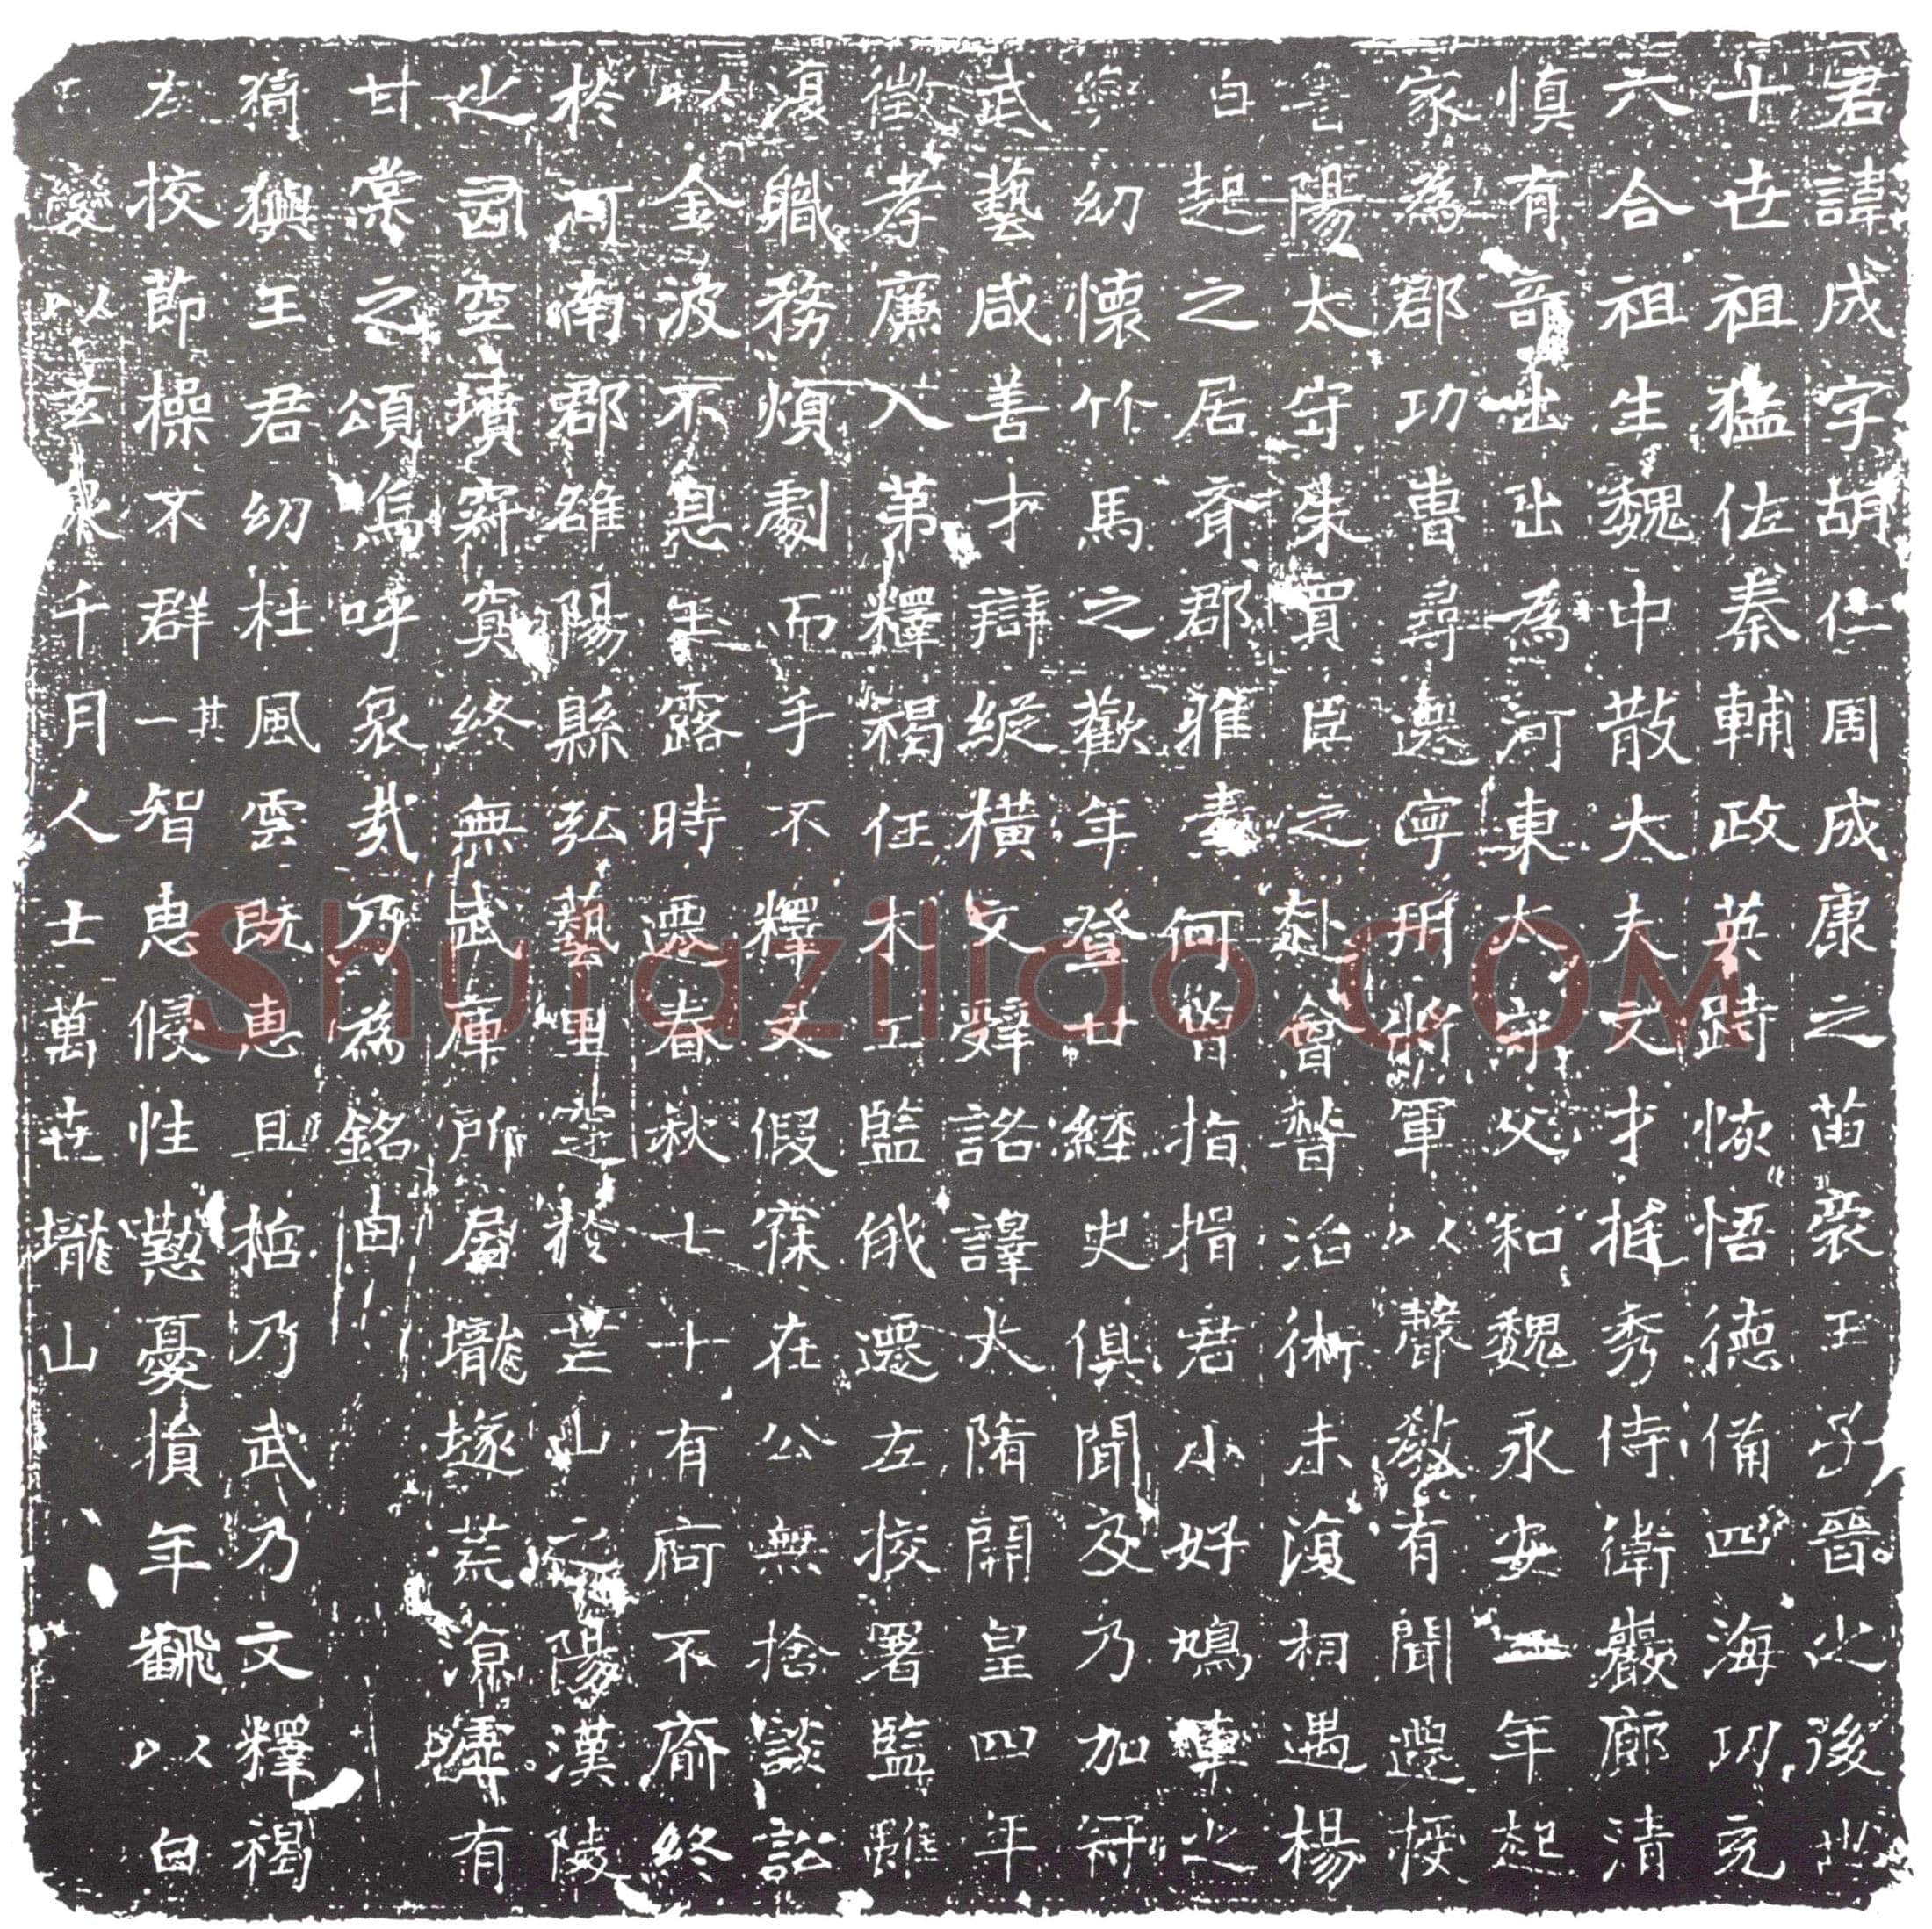 君諱成字胡仁周成康之苗裔王子晉之後也
十世祖猛佐秦輔政英跱恢悟德備四海功充
六合祖生魏中散大夫文才挺秀侍衛巖廊清
慎有奇出出為河東太守父和魏永安二年起
家為郡功曹尋遷寧朔將軍以聲教有聞遷授
陽太守朱買臣之赴會誓治術未復相遇楊
白起之居斉郡雅素何曾指指君小好鳩車之
幼懷竹馬之歡年登廿經史俱聞及乃加冠
武藝咸善才辯縱橫文辭詺譯大隋開皇四年
徵孝廉入第釋褐任木工監俄遷左挍署監雖
復職務煩劇而手不釋文假寐在公無捨談訟
以金波不息玉露時遷春秋七十有疴不齋終
於河南郡雒陽縣弘藝里窆於芒山之陽漢陵
之國空墳穽窴終無武庫所屬壠塚荒涼墟有
甘棠之頌焉呼哀哉乃為銘曰
猗歟王君幼杜風雲既惠且哲乃武乃文釋褐
左挍節操不群其一智惠侵性懃憂損年飜以白
變以玄泉千月人士萬世壠山
Shufaziliao.COM